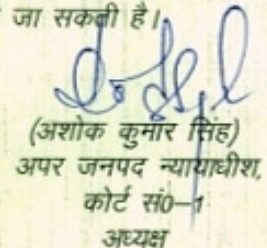 जा सकती है।
(अशोक कुमार सिंह)
अपर जनपद न्यायाधीश,
कोर्ट सं0-1
अध्यक्ष